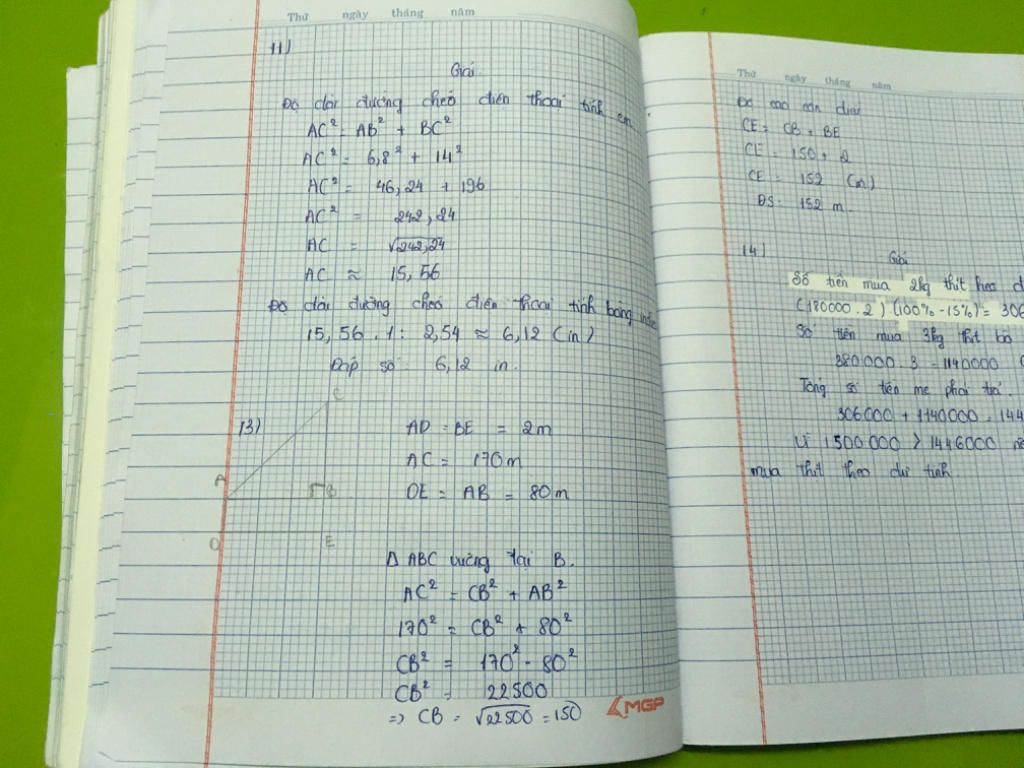 Thứ ngày tháng năm
11)
Giải
Độ dài đường chéo điện thoại tính cm.
AC² = AB² + BC²
AC² = 6,8² + 14²
AC² = 46,24 + 196
AC² = 242,24
AC = √242,24
AC ≈ 15,56
Độ dài đường chéo điện thoại tính bằng
15,56 . 1 : 2,54 ≈ 6,12 (in)
Đáp số : 6,12 in.
13)
C
A
B
D
E
AD = BE = 2m
AC = 170m
DE = AB = 80m
Δ ABC vuông tại B.
AC² = CB² + AB²
170² = CB² + 80²
CB² = 170² - 80²
CB² = 22500
=> CB = √22500 = 150
MGP
Thứ ngày tháng năm
Độ cao
CE = CB + BE
CE = 150 + 2
CE = 152 (m)
ĐS: 152 m.
14)
Giải
Số tiền mua 2kg thịt heo
(180000 . 2) . (100% - 15%) = 306
Số tiền mua 3kg thịt bò
380.000 . 3 = 1140000
Tổng số tiền mẹ phải trả.
306000 + 1140000 = 144
Vì 1500.000 > 1446000
mua thịt theo dự tính.